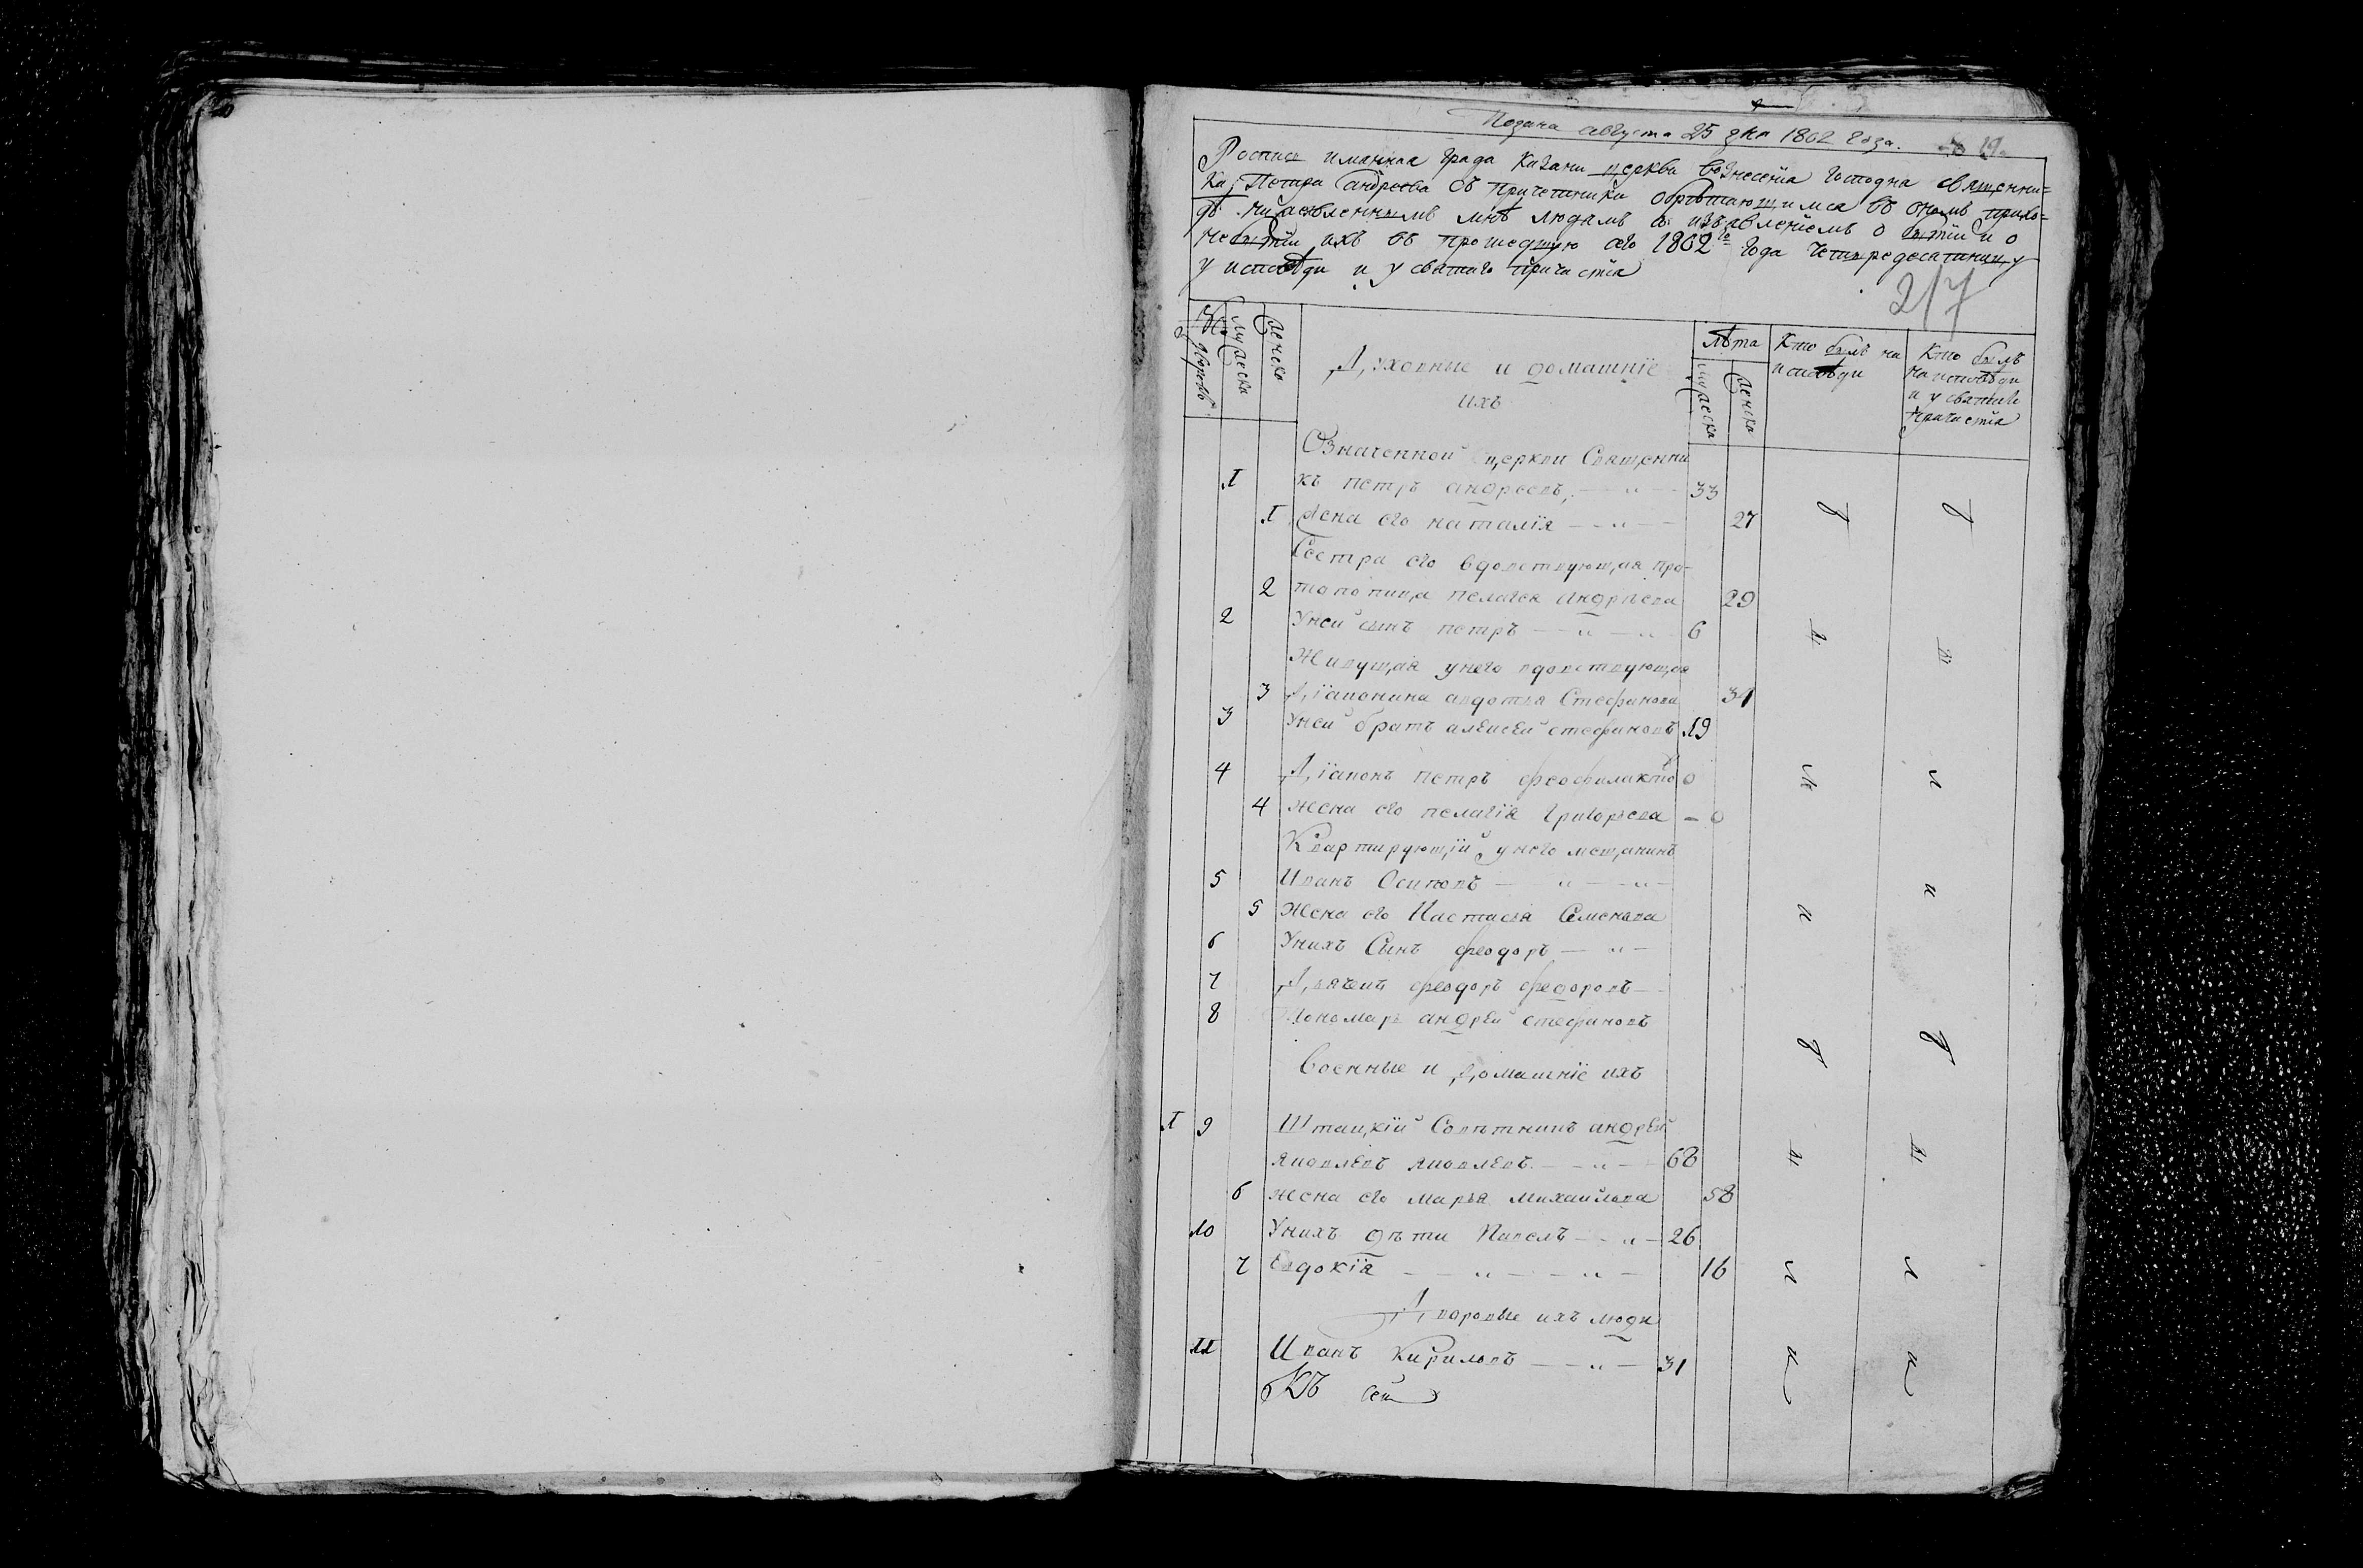 Подана августа 25 дня 1802 года.
Роспись имянная града Казани церкви вознесенїя господня священни=
ка Петра андреева съ причетники обрѣтающимся въ ономъ прихо=
дѣ нижеявленнымъ людямъ со изъявленїемъ о бытїи и о
небытїи ихъ въ прошедшую сего 1802го года четыредесятницу
у исповѣди и у святаго причастїя
217
дворовъ
мужеска
женска
Духовные и домашнїе
ихъ
лѣта
мужеска
женска
Кто былъ на
исповѣди
Кто былъ
на исповѣди
и у святаго
причастїя
Означенной церкви Священни
1 къ петръ андреевъ, — „ — 33
1 жена его наталїя — „ — 27
Сестра его вдовствующая про-
2 топопица пелагея андрѣева 29
2 Уней сынъ петръ — „ — „ — 6
Живущая унего вдовствующая
3 Дїаконица авдотья Стефанова 31
3 Уней братъ алексей стефановъ 19
4 Дїаконъ петръ феофилакто 0
4 жена его пелагїя григорьева — 0
Квартирующїй унего мещанинъ
5 Иванъ Осиповъ — „ — „ —
5 Жена его Настасья Семенова
6 Унихъ Сынъ феодоръ — „ —
7 Дьячекъ феодоръ федоровъ —
8 Пономарь андрей стефановъ
Военные и домашнїе ихъ
1 9 Штацкїй Совѣтникъ андрей
яковлевъ яковлевъ — „ — 68
6 жена его марья михайлова 58
10 Унихъ дѣти Павелъ — „ — 26
7 Евдокїя — „ — „ — 16
Дворовые ихъ люди
11 Иванъ Кириловъ — „ — 31
Къ сей